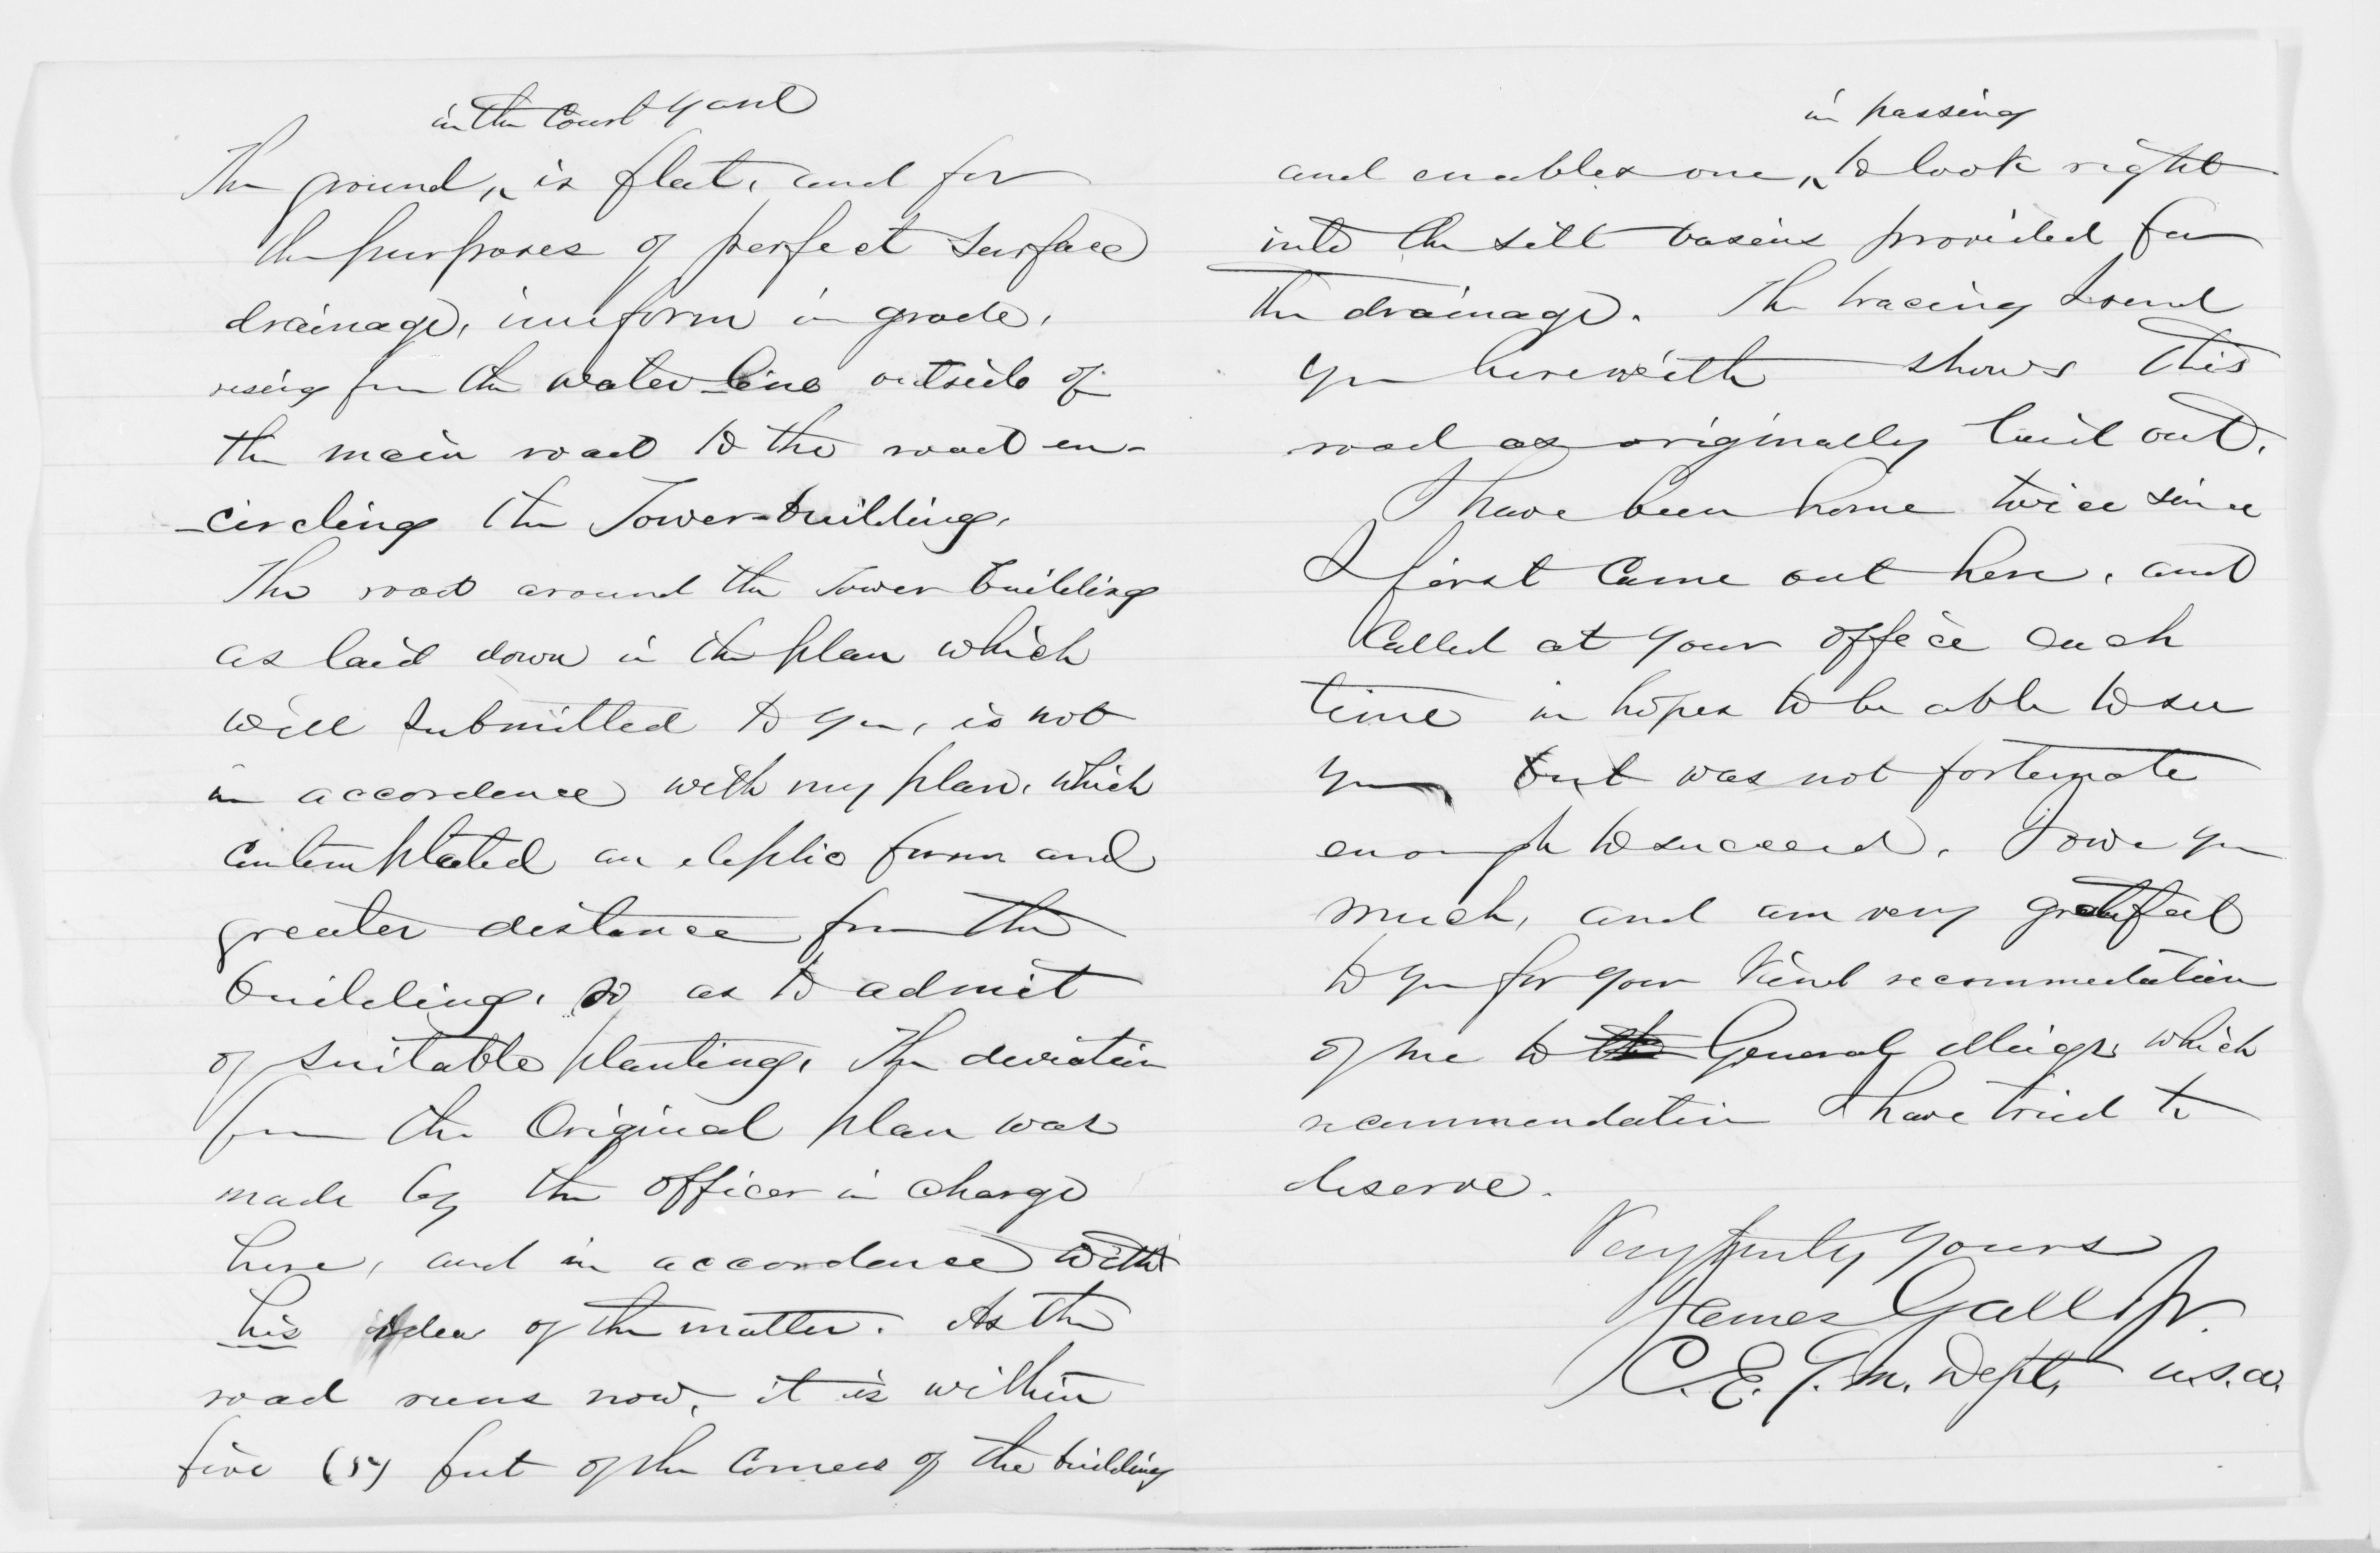 in the Court Yard
The ground, ^ is flat, and for
the purposes of perfect surface
drainage, uniform in grade,
rising from the water-line outside of
the main road to the road en-
-circling the Tower-building.
The road around the Tower building
as laid down in the plan which
will submitted to you, is not
in accordence with my plan, which
Contemplated an eleptic form and
greater distance from the
building, so as to admit
of suitable planting, The deviation
from the Original plan was
made by the Officer in charge
here, and in accordence with
his idea of the matter. As the
road runs now, it is within
five (5) feet of the Corners of the building
in passing
and enables one, ^ to look right
into the silt basins provided for
the drainage. The tracing I send
you herewith shows this
road as originally laid out.
I have been home twice since
I first Came out here, and
Called at your office each
time in hopes to be able to see
you but was not fortunate
enough to succeed. I owe you
much, and am very grateful
to you for your kind recommedation
of me to the General Meigs, which
recommendation I have tried to
deserve.
Very truly yours
James Gall Jr.
C. E. Q. M. Dept. U.S.A.